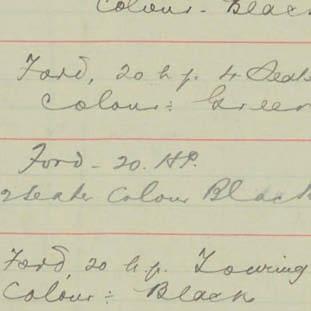 Colour - Black
Ford, 20 h.p. 4 Seate
Colour: Green
Ford - 20. HP.
2 Seater Colour Black
Ford, 20 h.p. Touring
Colour: Black